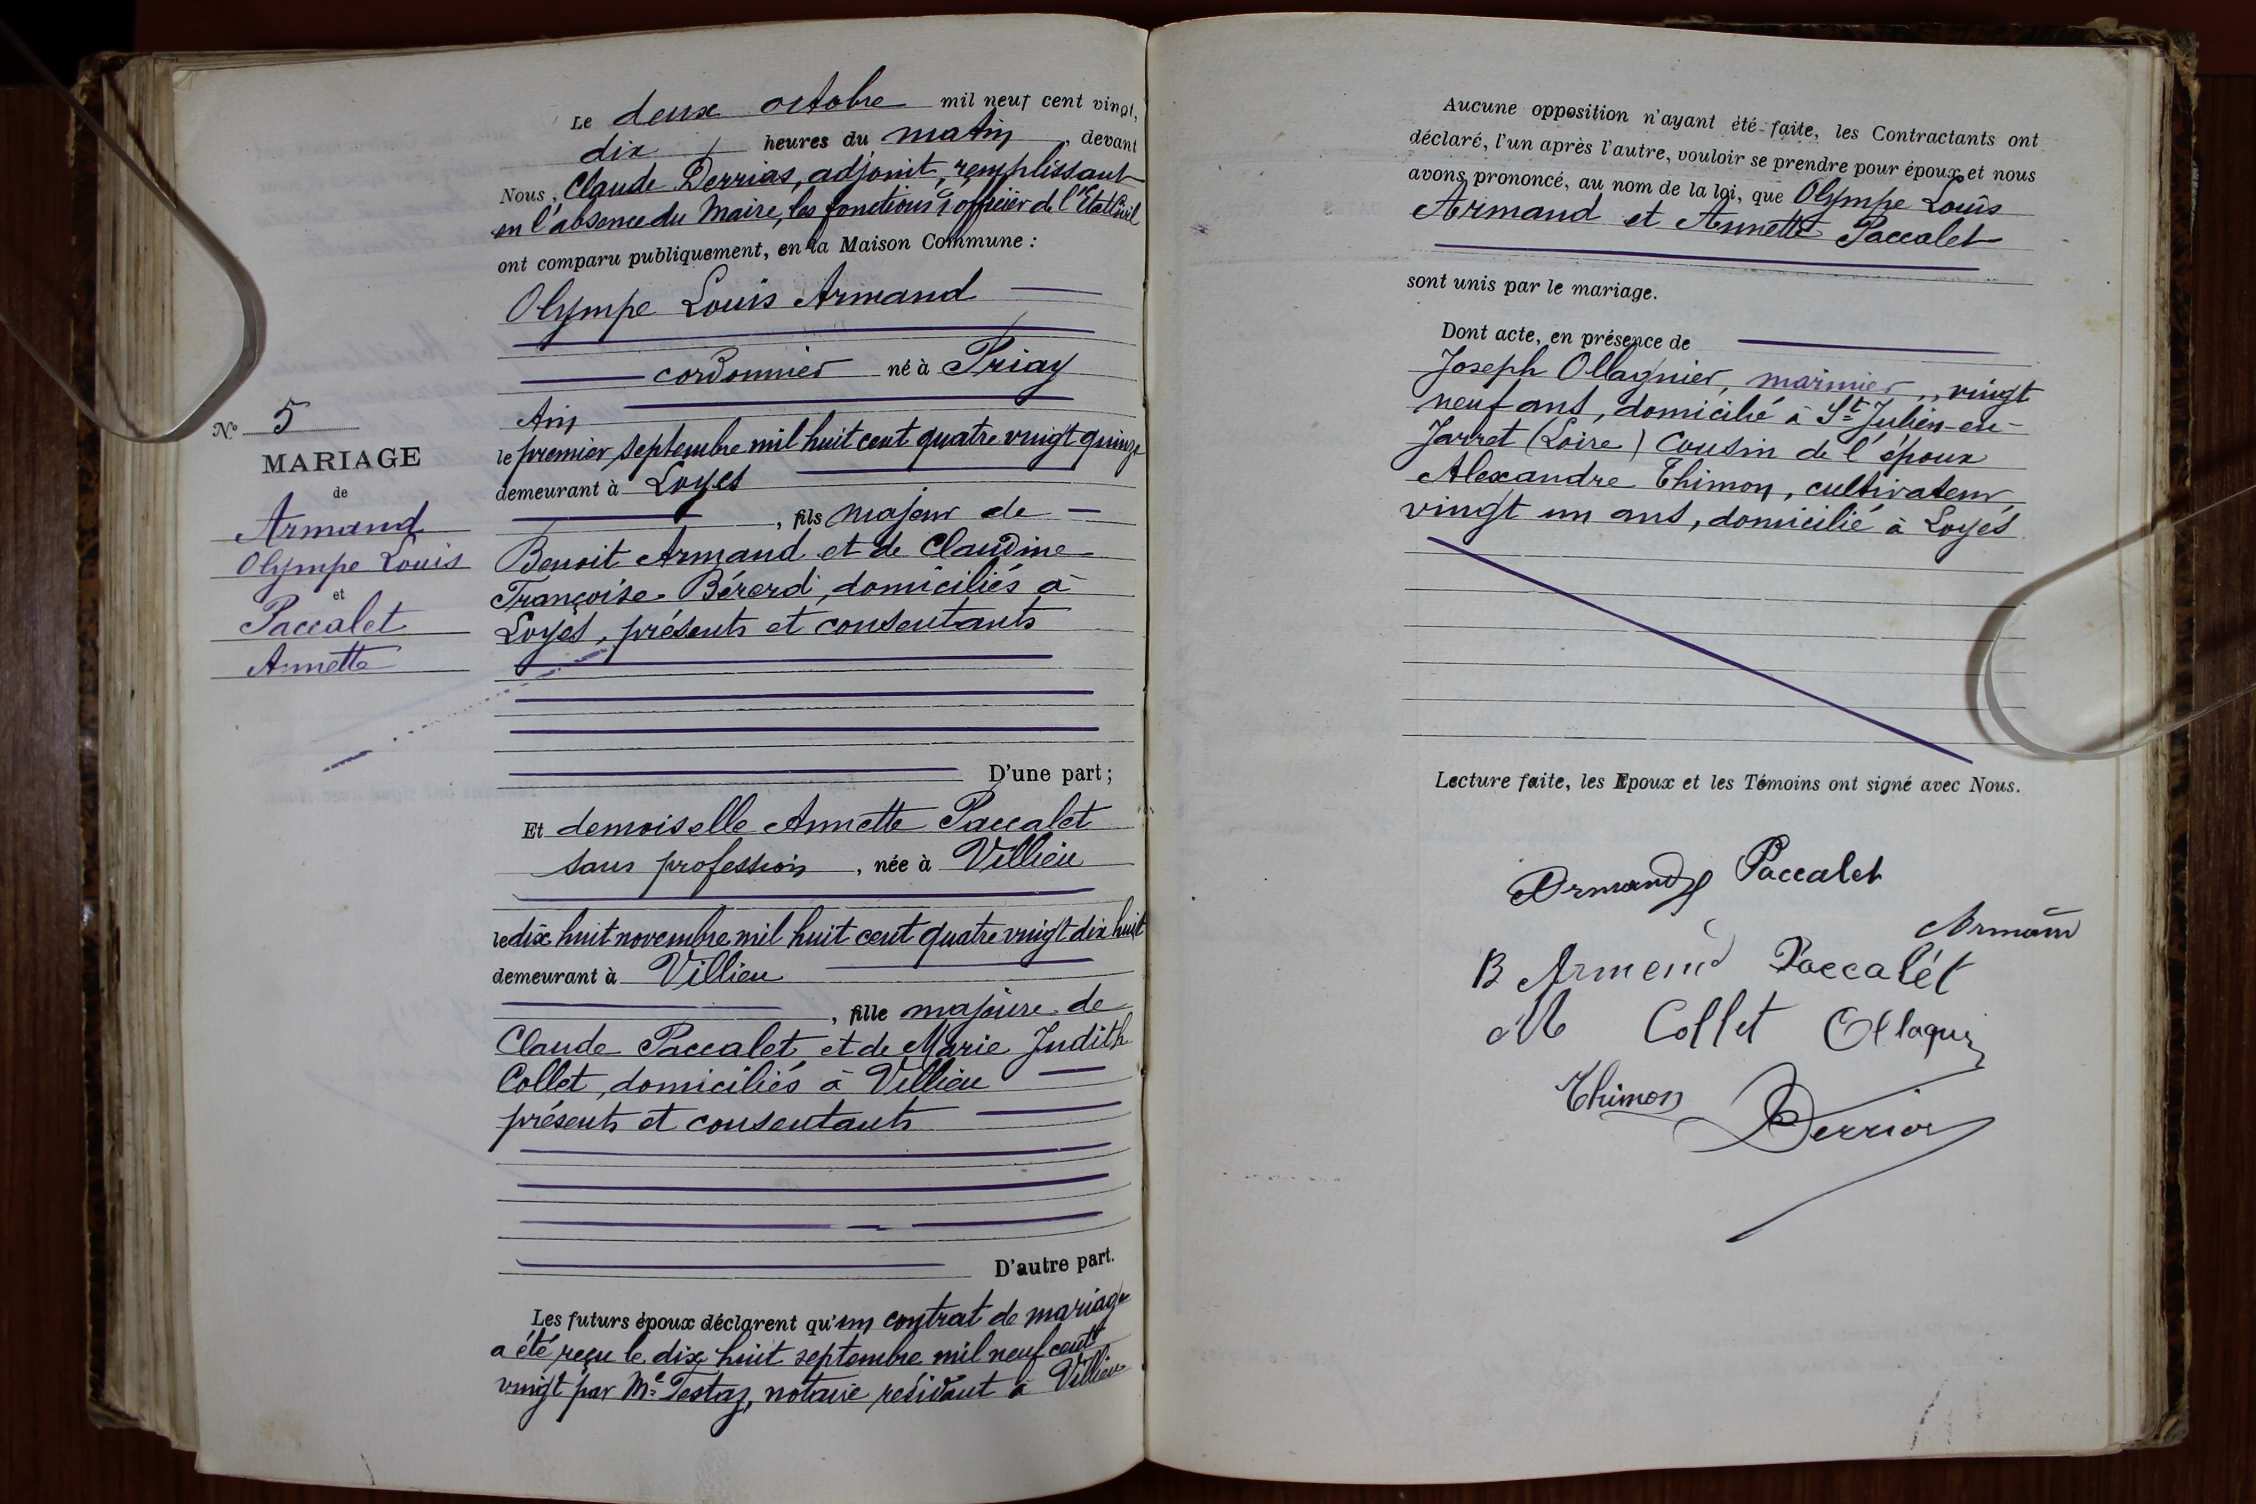 Le deux octobre mil neuf cent vingt,
dix heures du matin, devant
Nous, Claude Derrias, adjoint, remplissant
en l'absence du Maire, les fonctions d'officier de l'Etat Civil
ont comparu publiquement, en la Maison Commune :
Olympe Louis Armand
cordonnier né à Priay
Ain
le premier septembre mil huit cent quatre vingt quinze
demeurant à Loyes
, fils majeur de
Benoit Armand et de Claudine
Françoise Bérerd, domiciliés à
Loyes, présents et consentants
D'une part ;
Et demoiselle Annette Paccalet
sans profession, née à Villieu
le dix huit novembre mil huit cent quatre vingt dix huit
demeurant à Villieu
, fille majeure de
Claude Paccalet et de Marie Judith
Collet, domiciliés à Villieu
présents et consentants
D'autre part.
Les futurs époux déclarent qu'un contrat de mariage
a été reçu le dix huit septembre mil neuf cent
vingt par Me Testaz, notaire residant a Villieu
No 5
MARIAGE
de
Armand
Olympe Louis
et
Paccalet
Annette
Aucune opposition n'ayant été faite, les Contractants ont
déclaré, l'un après l'autre, vouloir se prendre pour époux et nous
avons prononcé, au nom de la loi, que Olympe Louis
Armand et Annette Paccalet
sont unis par le mariage.
Dont acte, en présence de
Joseph Ollagnier, marinier, vingt
neuf ans, domicilié à St Julien-en-
Jarret (Loire) cousin de l'époux
Alexandre Thimon, cultivateur
vingt un ans, domicilié à Loyes
Lecture faite, les Epoux et les Témoins ont signé avec Nous.
Armand Paccalet
B Armend Paccalét
M Collet
Thimon